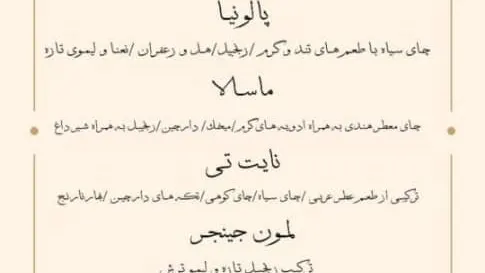 پالونیا
چای سیاه با طعم‌های تند و گرم / زنجبیل / هل و زعفران / نعنا و لیموی تازه
ماسالا
چای معطر هندی به همراه ادویه‌های گرم / میخک / دارچین / زنجبیل به همراه شیر داغ
نایت تی
ترکیبی از طعم عطر عربی / چای سیاه / چای کوهی / تکه‌های دارچین / بهار نارنج
لمون جینجر
ترکیب زنجبیل تازه و لیمو ترش